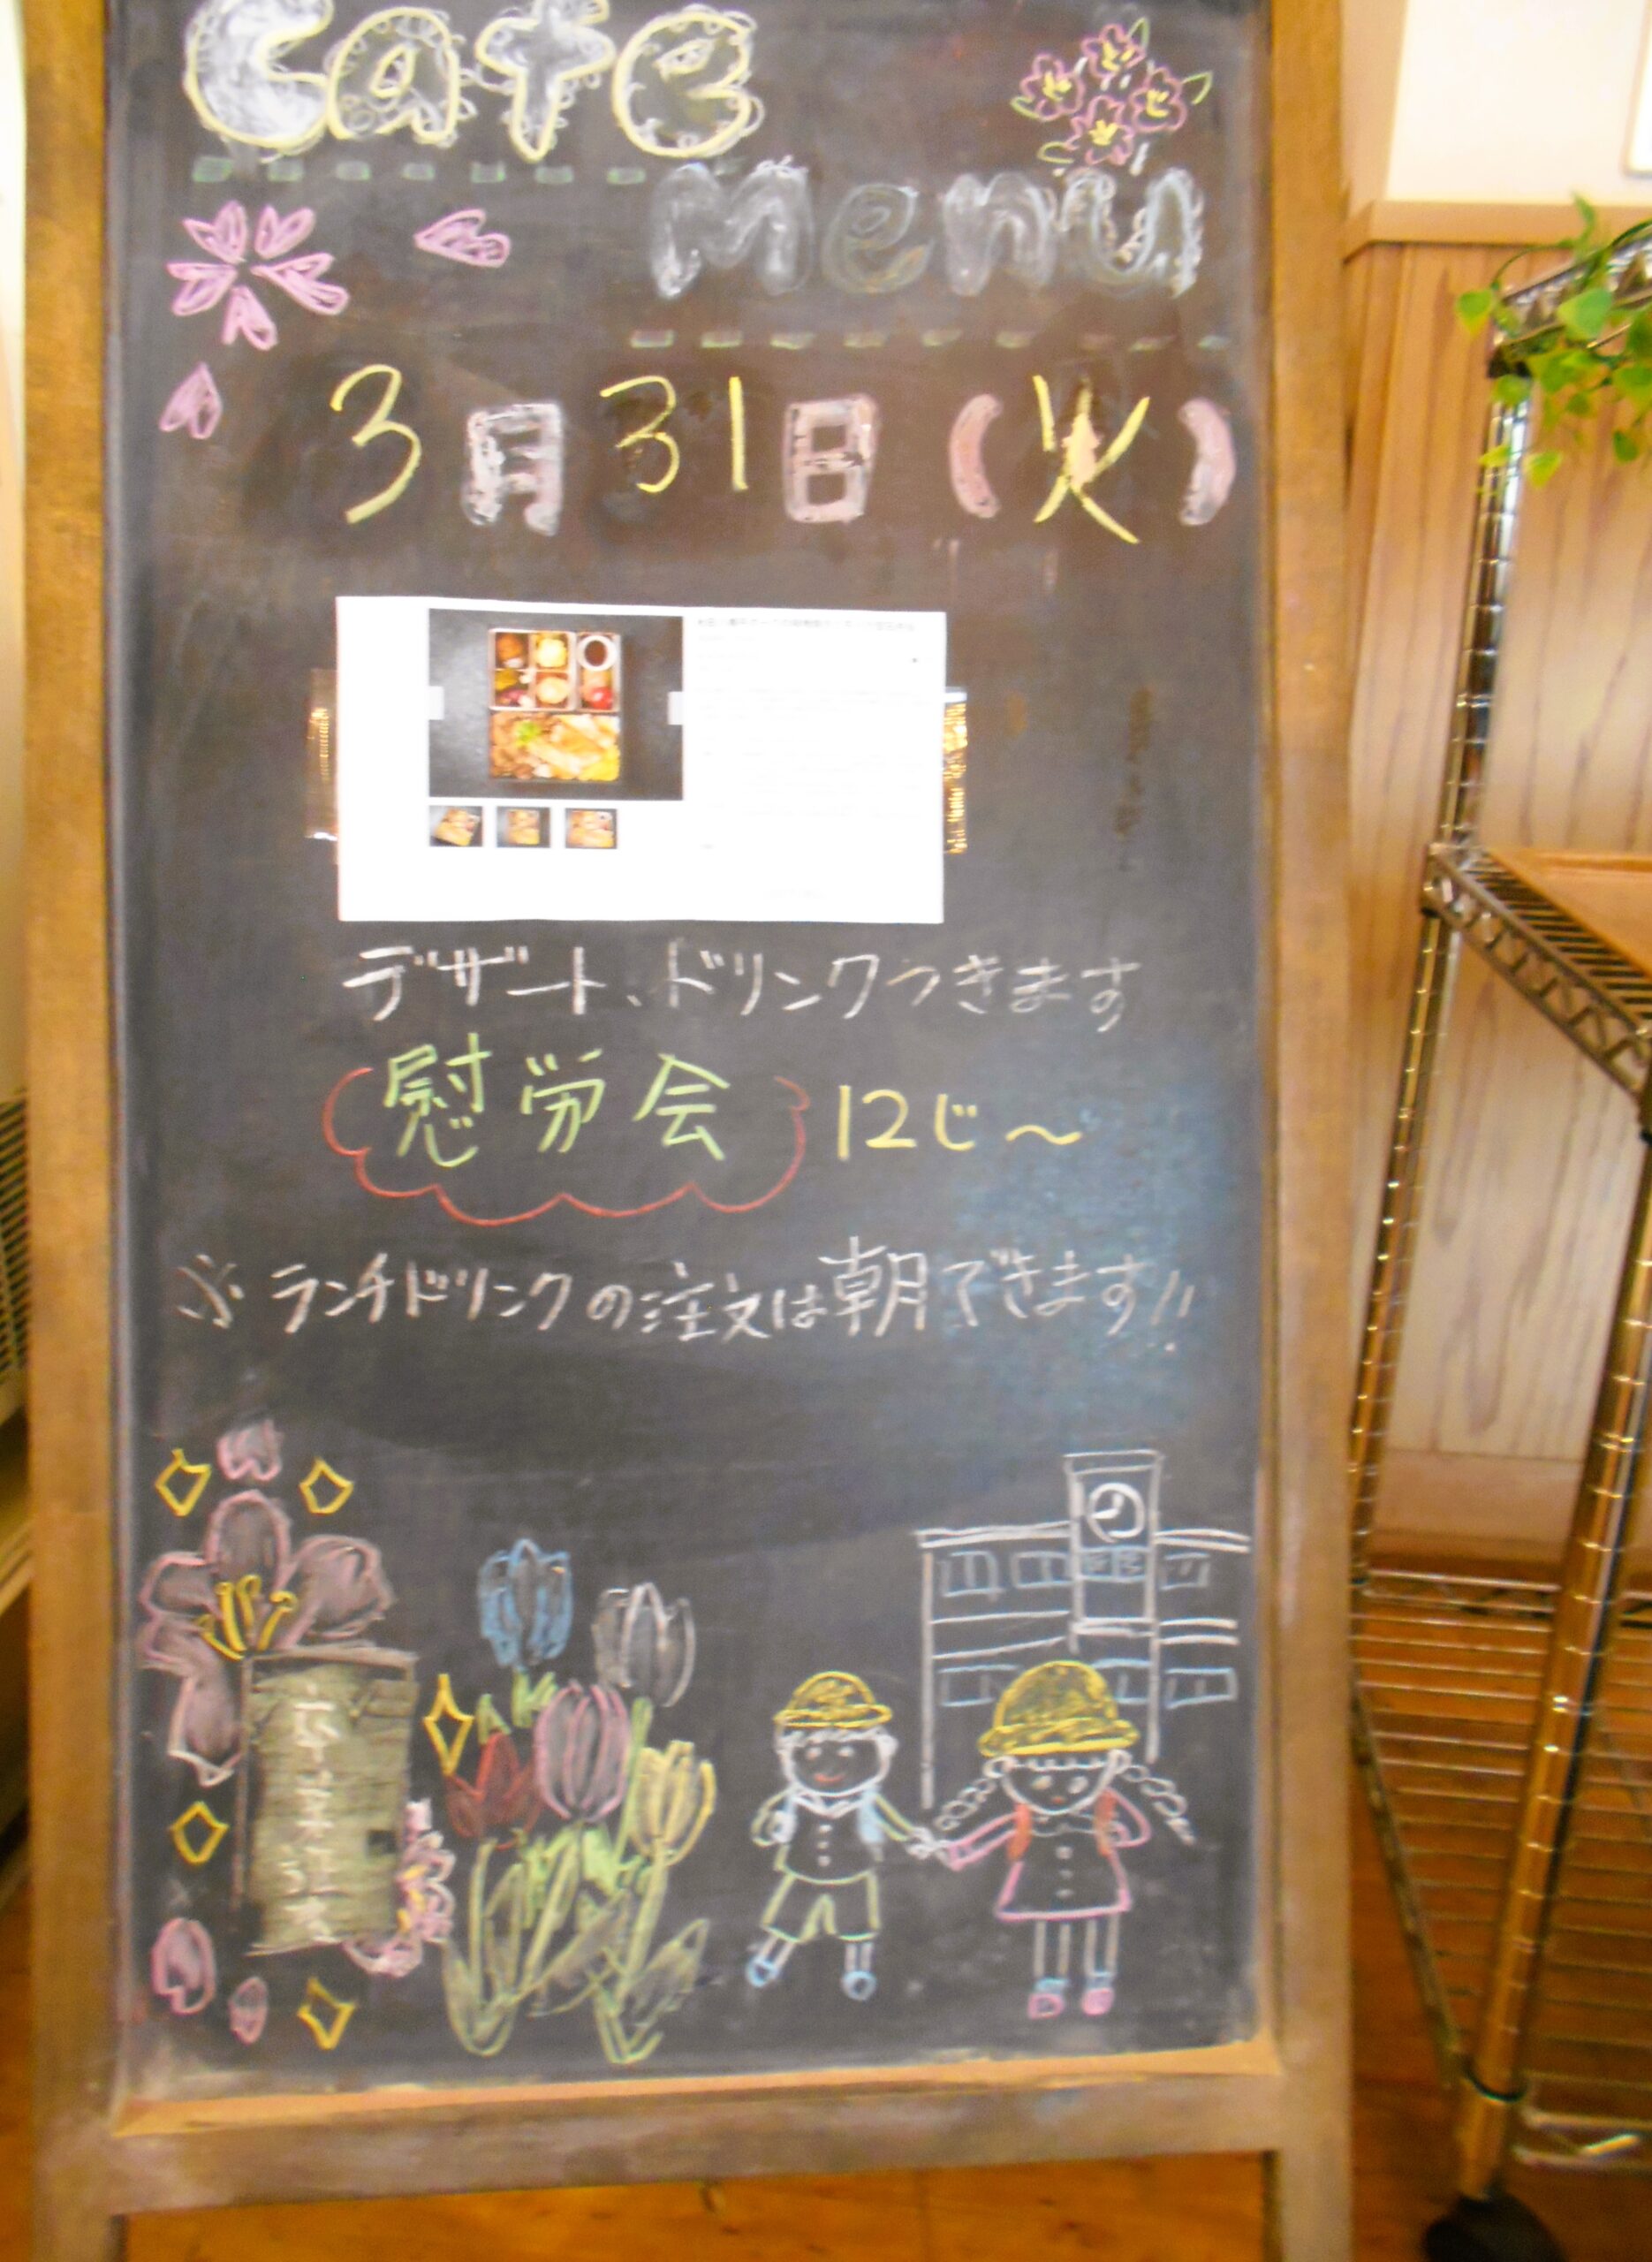 Cafe
Menu
3月31日(火)
デザート、ドリンクつきます
慰労会 12じ〜
※ランチドリンクの注文は朝できます!!